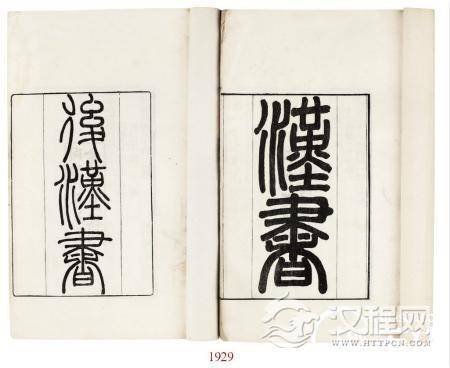 漢書
後漢書
汉程网
WWW.HTTPCN.COM
1929